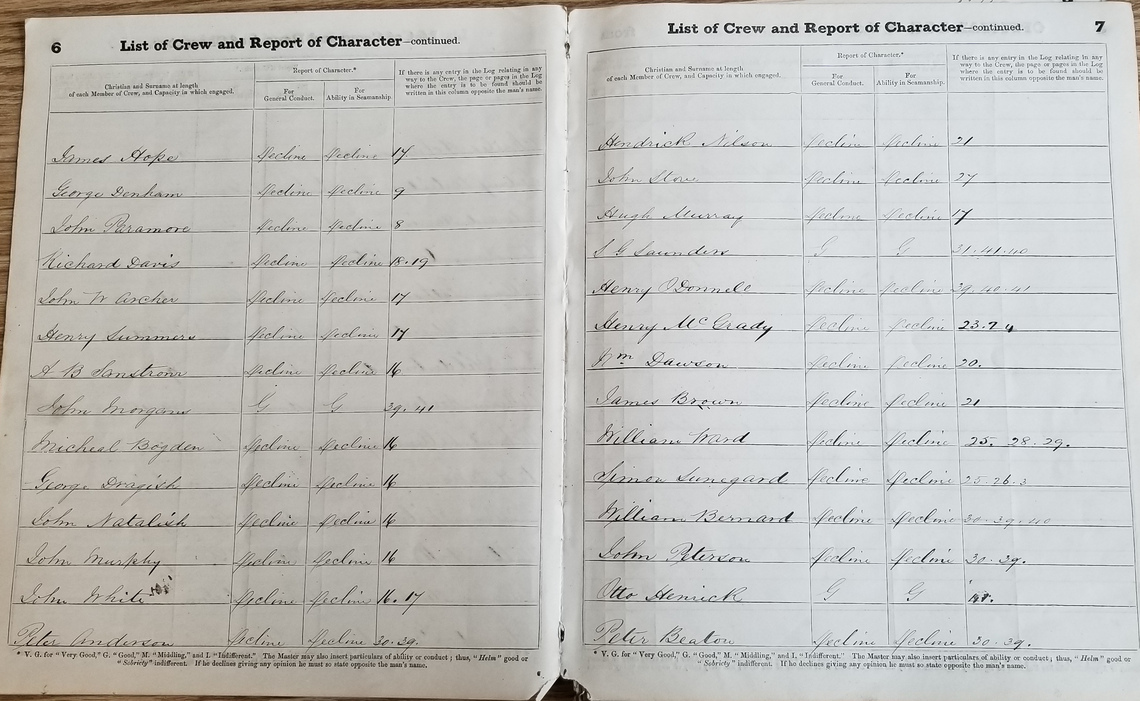 6 List of Crew and Report of Character—continued.
Christian and Surname at length
of each Member of Crew, and Capacity in which engaged.
Report of Character.*
For
General Conduct.
For
Ability in Seamanship.
If there is any entry in the Log relating in any
way to the Crew, the page or pages in the Log
where the entry is to be found should be
written in this column opposite the man's name.
James Hope Decline Decline 17
George Denham Decline Decline 9
John Paramore Decline Decline 8
Richard Davis Decline Decline 18.19
John W Archer Decline Decline 17
Henry Summers Decline Decline 17
A B Sanstrom Decline Decline 16
John Morgans G G 39.41
Micheal Bogden Decline Decline 16
George Dragish Decline Decline 16
John Natalish Decline Decline 16
John Murphy Decline Decline 16
John White Decline Decline 16.17
Peter Anderson Decline Decline 30.39.
* V. G. for "Very Good," G. "Good," M. "Middling," and I. "Indifferent." The Master may also insert particulars of ability or conduct; thus, "Helm" good or
"Sobriety" indifferent. If he declines giving any opinion he must so state opposite the man's name.
List of Crew and Report of Character—continued. 7
Christian and Surname at length
of each Member of Crew, and Capacity in which engaged.
Report of Character.*
For
General Conduct.
For
Ability in Seamanship.
If there is any entry in the Log relating in any
way to the Crew, the page or pages in the Log
where the entry is to be found should be
written in this column opposite the man's name.
Hendrick Nilson Decline Decline 21
John Stove Decline Decline 27
Hugh Murray Decline Decline 17
S G Saunders G G
Henry O'Donnell Decline Decline 39.40.41
Henry McGrady Decline Decline
Wm Dawson Decline Decline 20.
James Brown Decline Decline 21
William Ward Decline Decline 25. 28.29.
Simon Decline Decline
William Bernard Decline Decline 30.39.40
John Peterson Decline Decline 30.39.
Otto Henrick G G
Peter Beaton Decline Decline 30.39.
* V. G. for "Very Good," G. "Good," M. "Middling," and I. "Indifferent." The Master may also insert particulars of ability or conduct; thus, "Helm" good or
"Sobriety" indifferent. If he declines giving any opinion he must so state opposite the man's name.